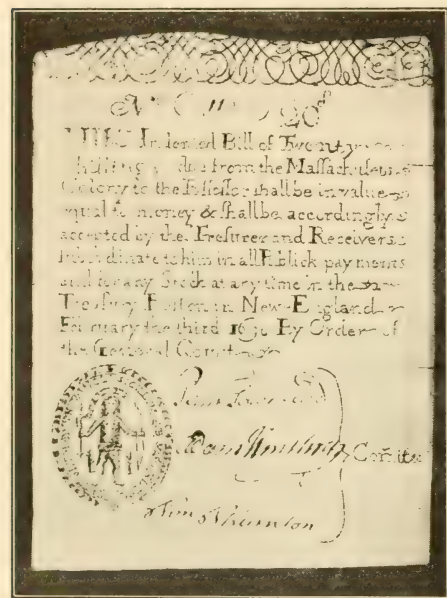 20s
Indented Bill of Twenty
due from the Massachusets
Colony to the Possessor shall be in value
equal to money & shall be accordingly
accepted by the Tresurer and Receivers
subordinate to him in all Publick payments
and for any Stock at any time in the
Treasury Boston in New-England
February the third 1690 By Order of
the General Court
Penn Townsend
Adam Winthrop Comitee
Tim Thornton